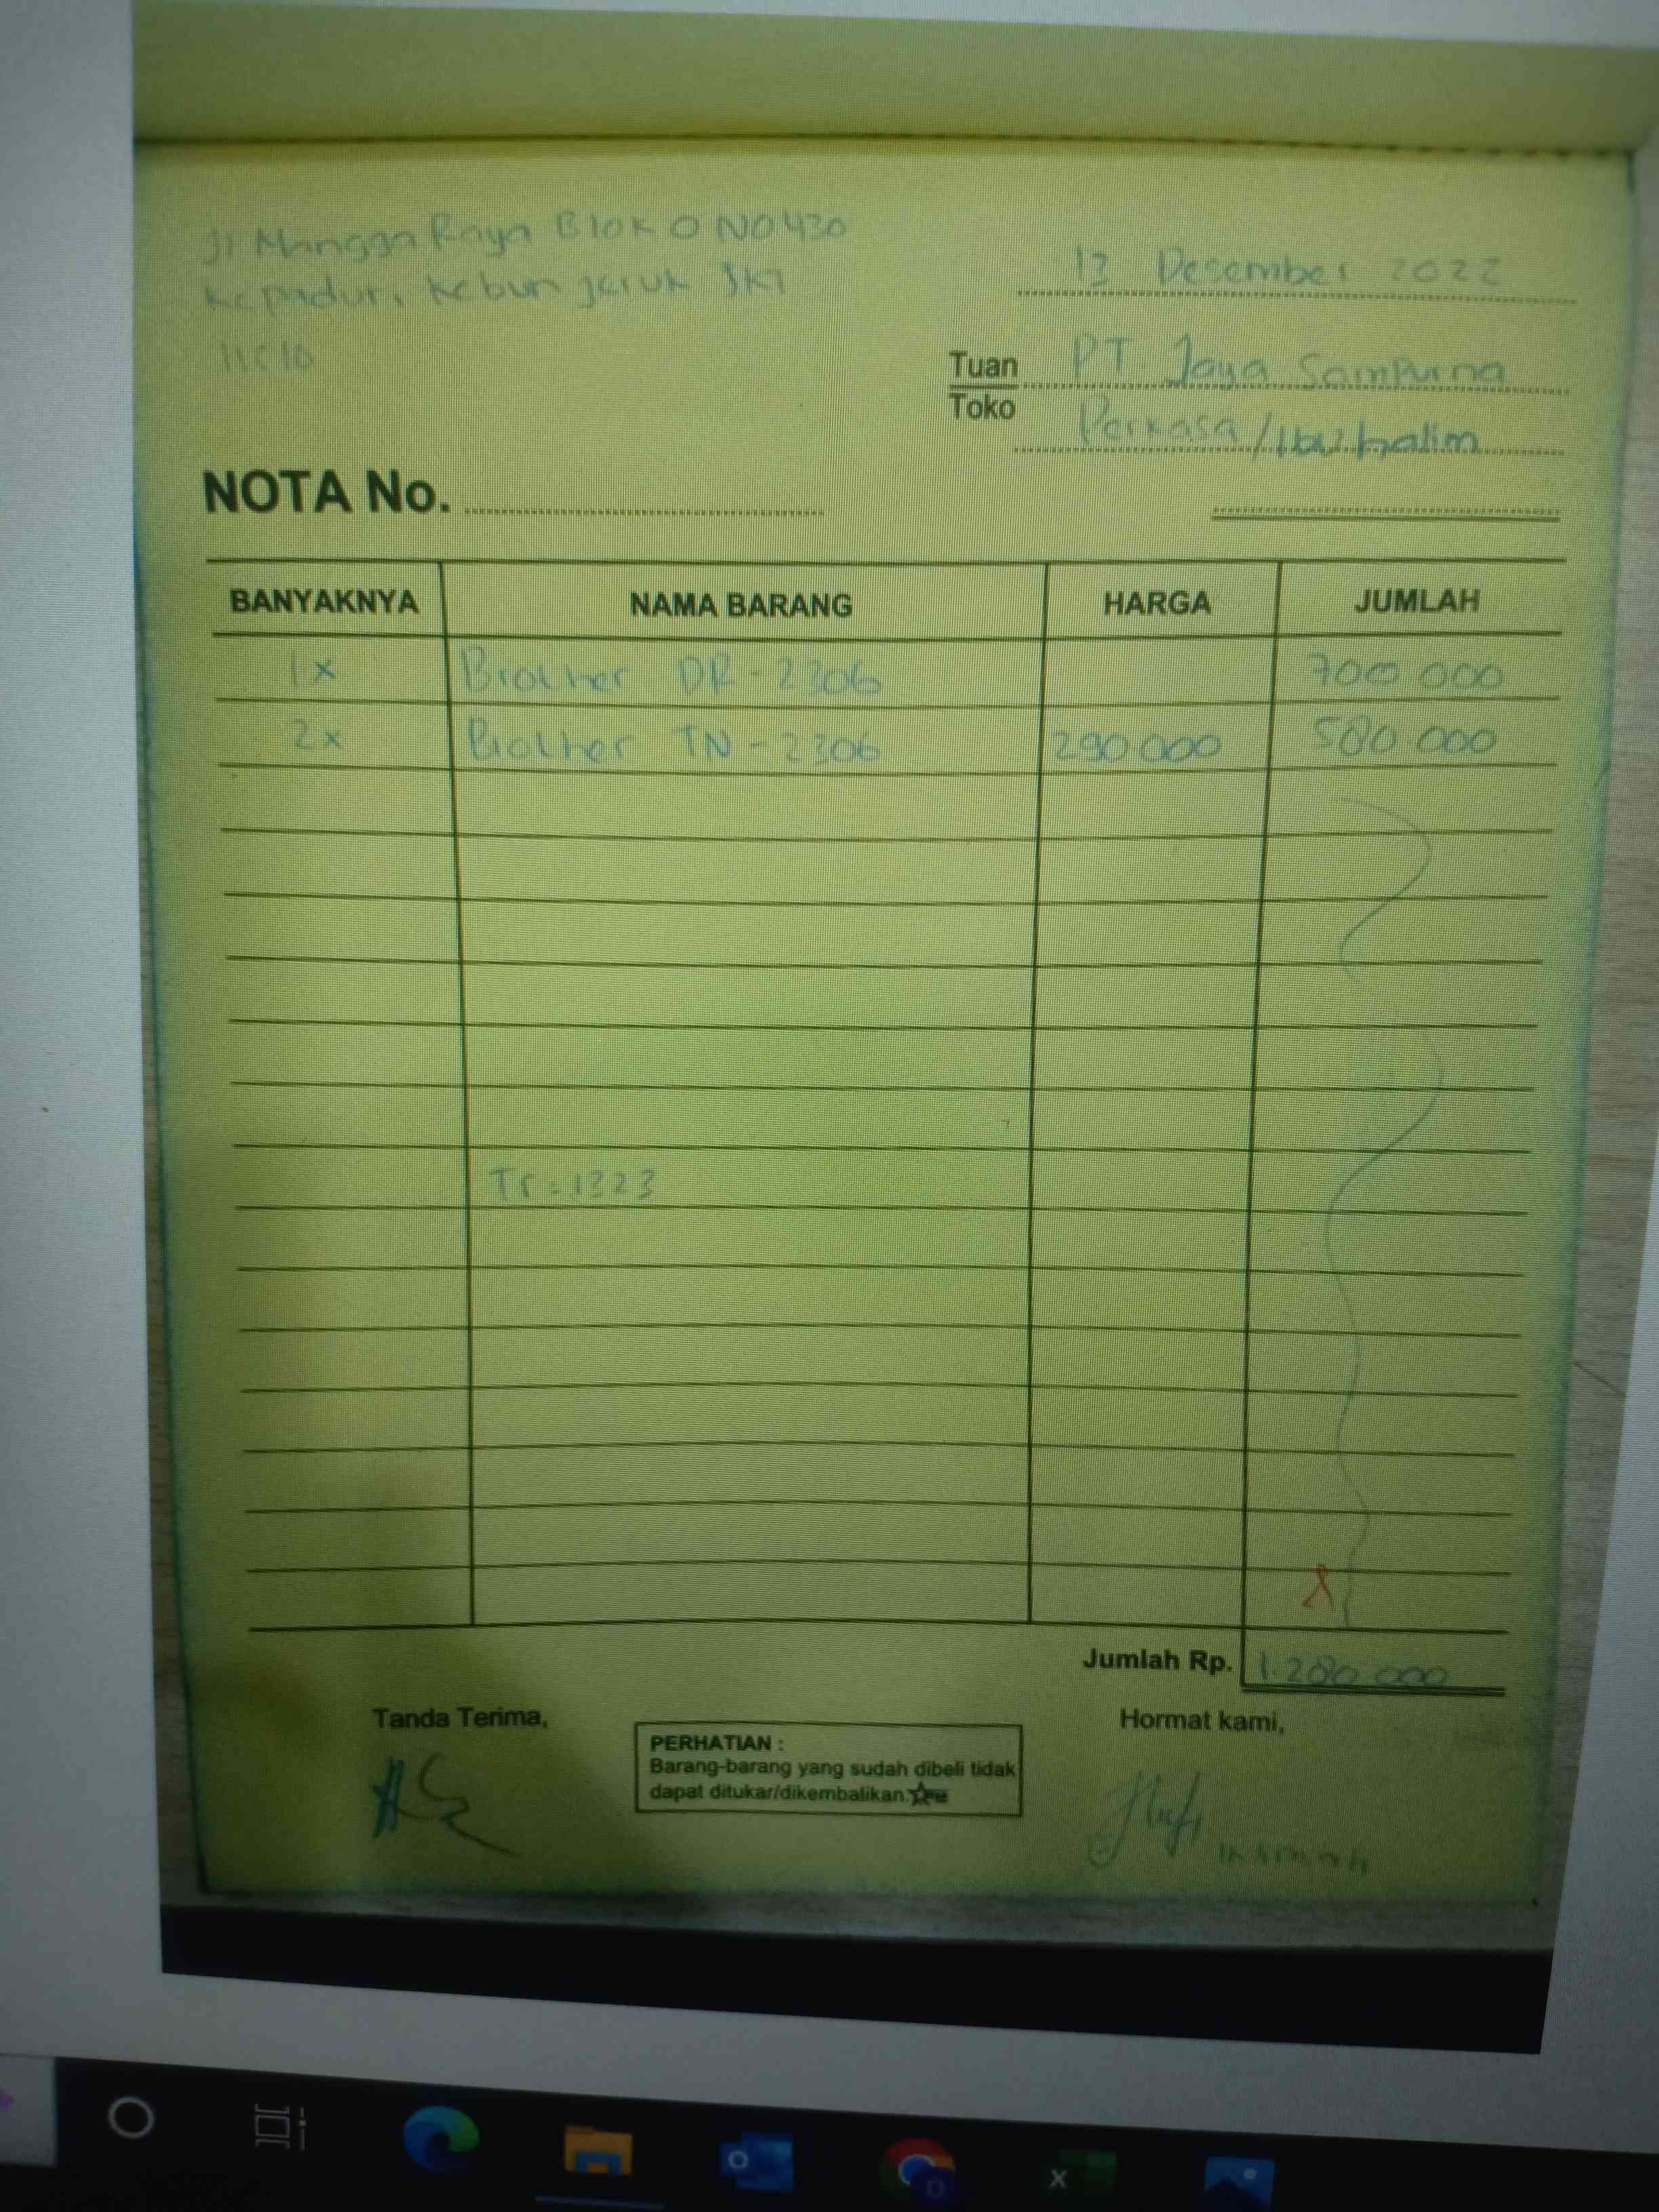 Jl Mangga Raya Blok O NO430
Kepaduri Kebun jeruk JKT
13 Desember 2022
Tuan PT. Jaya Sampurna
Toko Perkasa/Ibu halim
NOTA No.
BANYAKNYA NAMA BARANG HARGA JUMLAH
1x Brother DR-2306 700 000
2x Brother TN-2306 290 000 580.000
Tr=1323
Jumlah Rp. 1.280 000
Tanda Terima, Hormat kami,
PERHATIAN :
Barang-barang yang sudah dibeli tidak
dapat ditukar/dikembalikan.